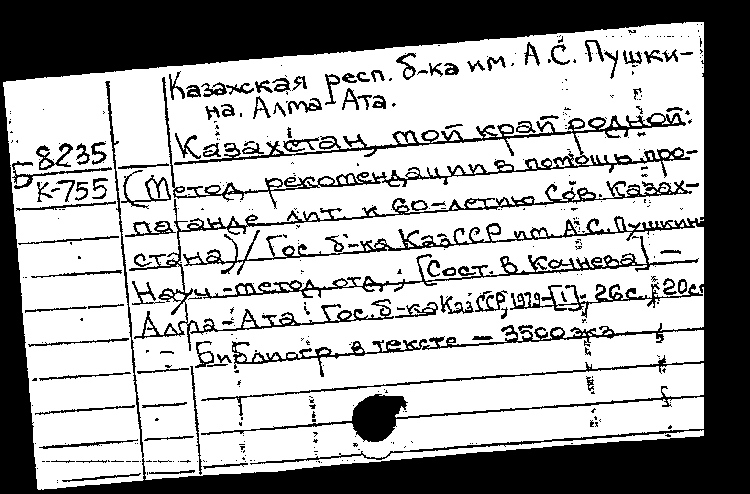 Казахская респ. б-ка им. А.С. Пушки-
на. Алма-Ата.
Б 8235
К-755
Казахстан, мой край родной:
(Метод. рекомендации в помощь про-
паганде лит. к 60-летию Сов. Казах-
стана) / Гос. б-ка КазССР им. А.С. Пушкина
Науч.-метод. отд.; [Сост. В. Качнева] —
Алма-Ата: Гос. б-ка КазССР, 1979-[1]; 26с.; 20см
— Библиогр. в тексте — 3500 экз